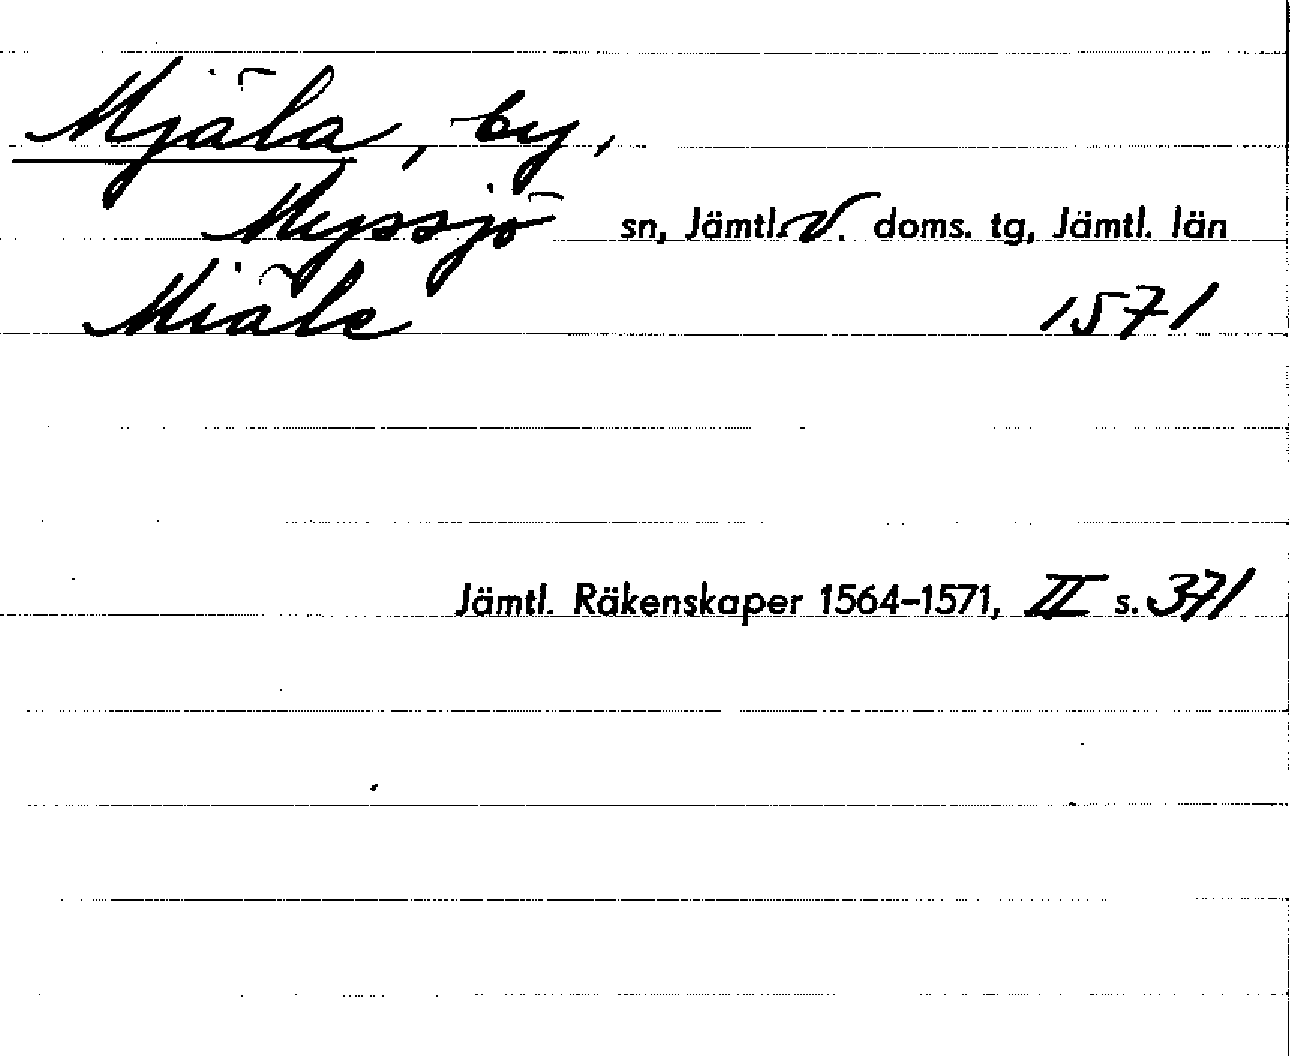 Mjäla, by,
Myssjö sn, Jämtl. V. doms. tg, Jämtl. län
Miäle 1571
Jämtl. Räkenskaper 1564-1571, II s. 371